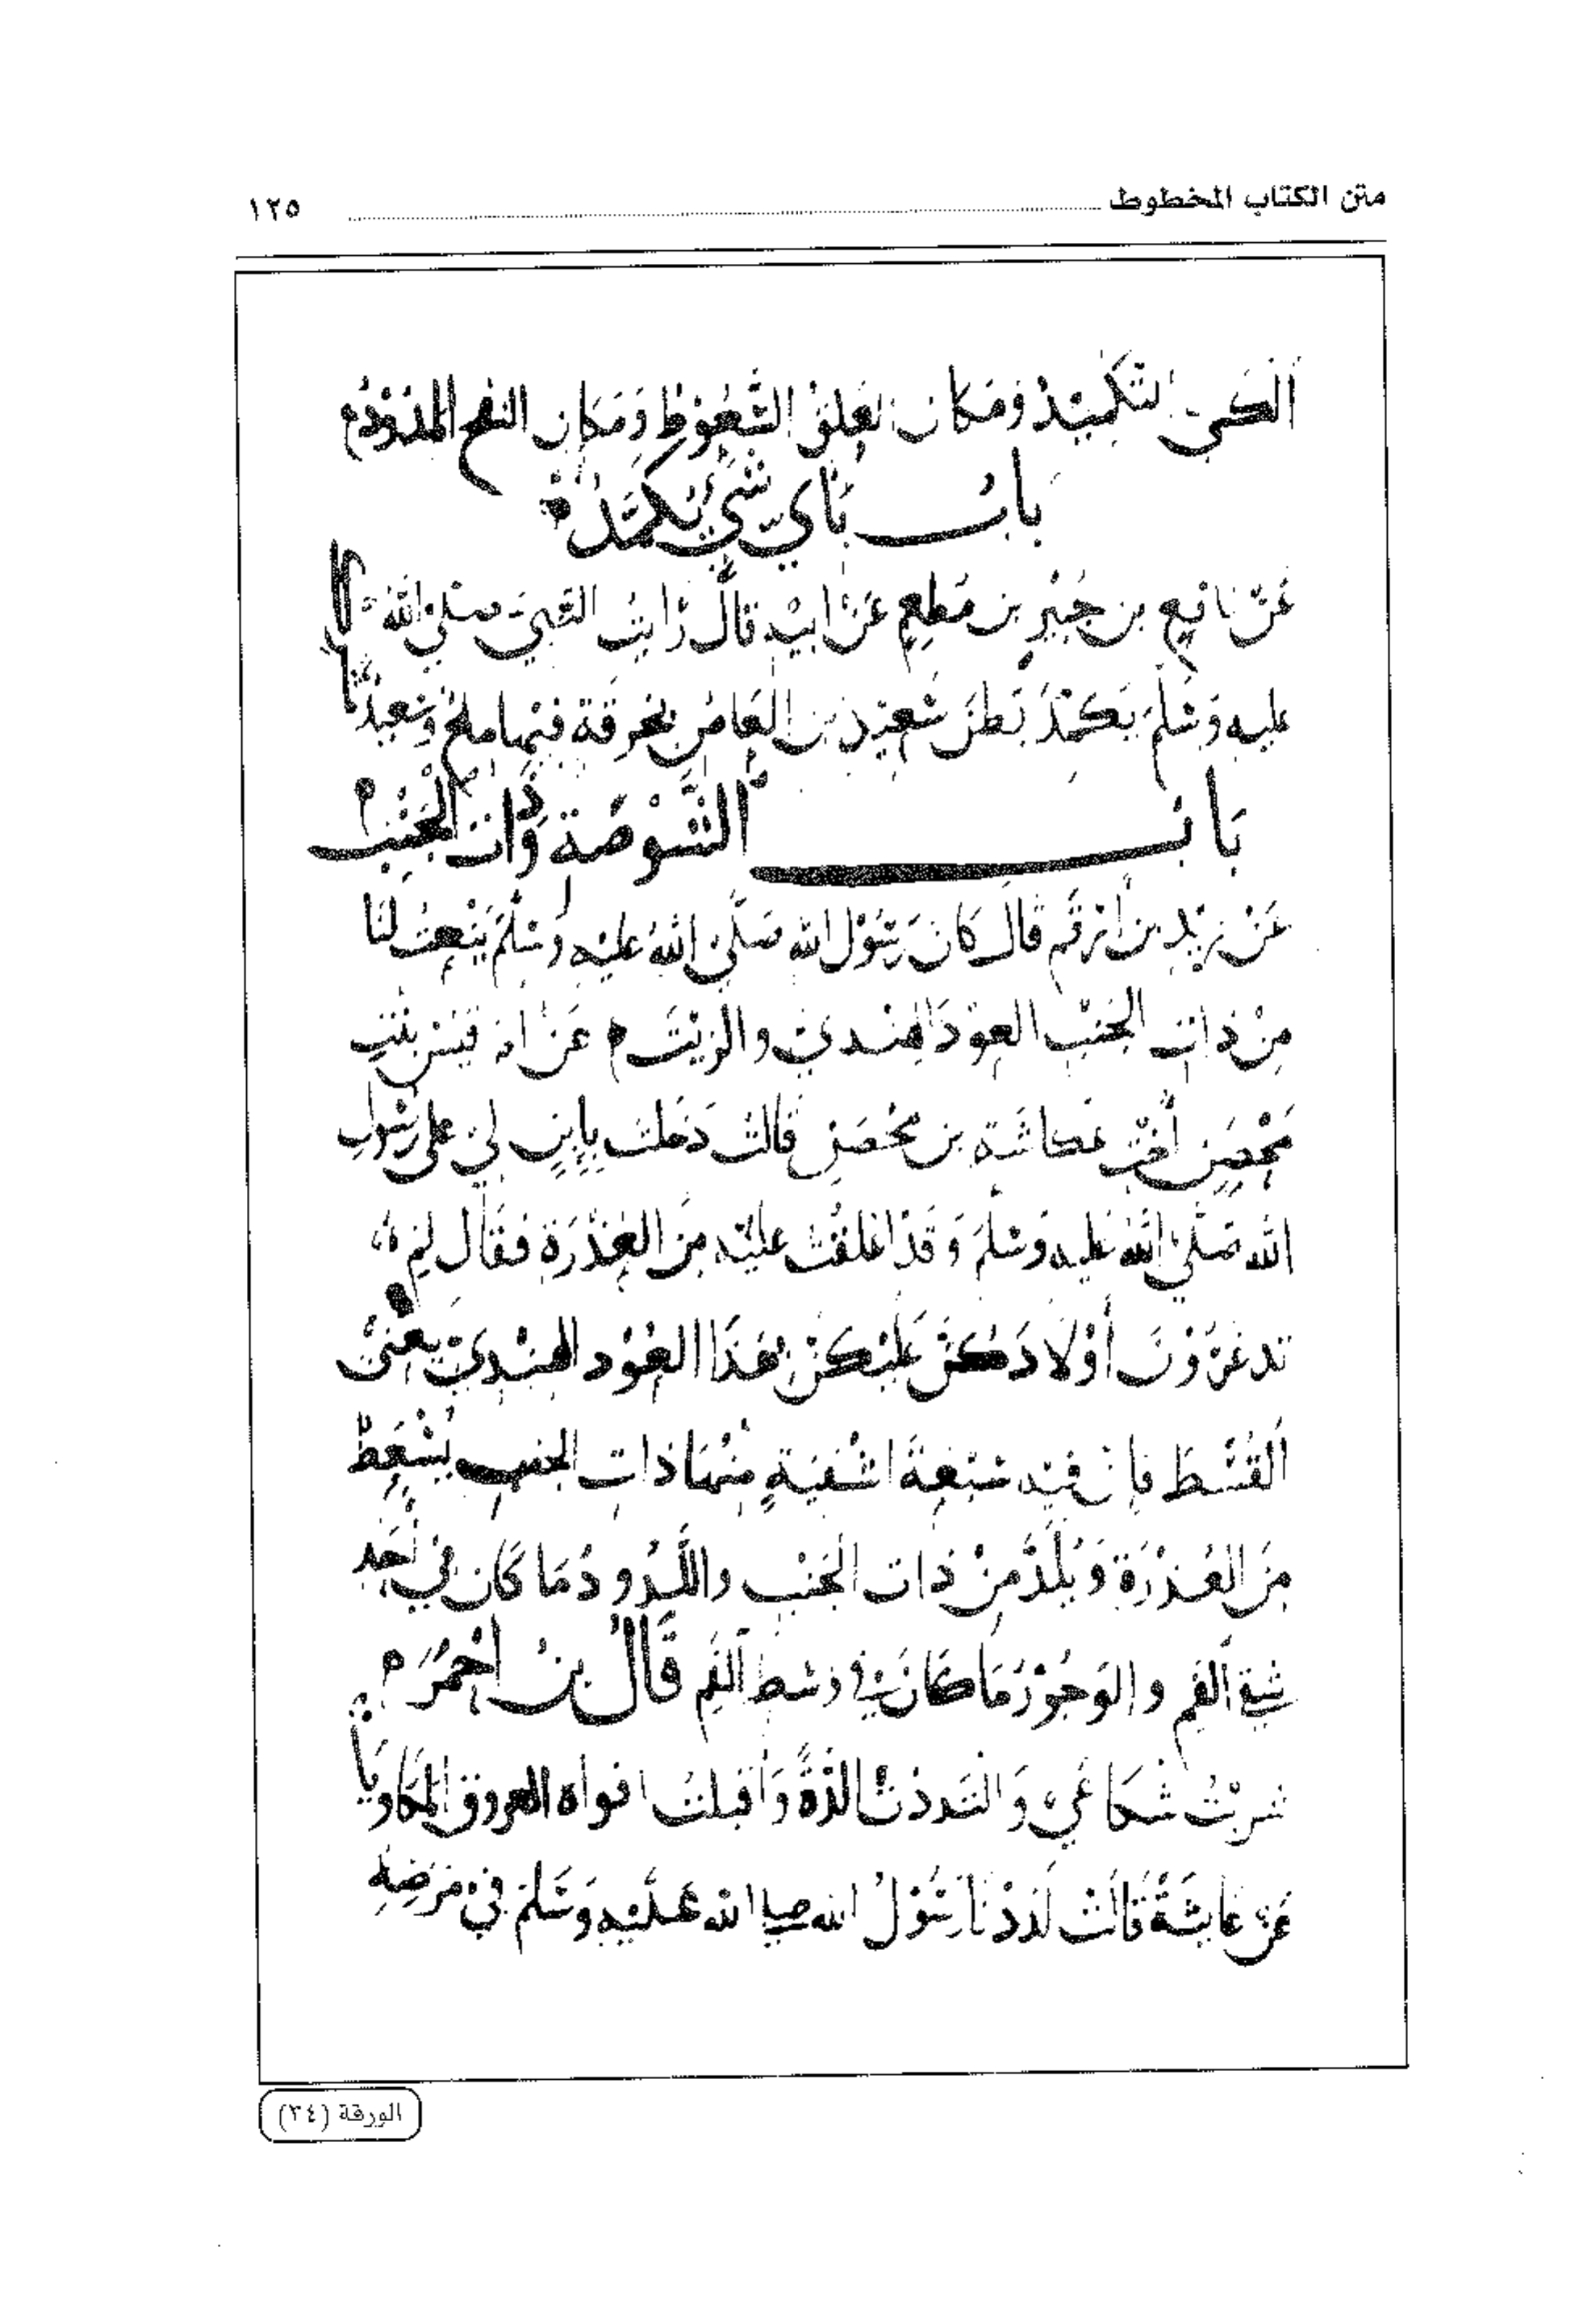 متن الكتاب المخطوط ١٢٥
الكي التكميد ومكان العلق السعوط ومكان النفخ اللدود
باب باي شيء يكمد
عن نافع بن جبير بن مطعم عن ابيه قال رايت النبي صلى الله
عليه وسلم يكمد بطن سعيد بن العاص بخرقة فيها ملح
باب الشوصة وذات الجنب
عن زيد بن أرقم قال كان رسول الله صلى الله عليه وسلم ينعت لنا
من ذات الجنب العود الهندي والزيت عن ام قيس بنت
محصن أخت عكاشة بن محصن قالت دخلت بابن لي على رسول
الله صلى الله عليه وسلم وقد اعلقت عليه من العذرة فقال لم
تدغرون أولادكن عليكن بهذا العود الهندي يعني
القسط فإن فيه سبعة اشفية منها ذات الجنب يسعط
من العذرة ويلد من ذات الجنب واللدود ما كان في أحد
شق الفم والوجور ما كان في وسط الفم قال بن احمر
شربت شكاعي والتددت الدة وأقبلت افواه العروق المكاويا
عن عايشة قالت لددنا رسول الله صلى الله عليه وسلم في مرضه
الورقة (٣٤)